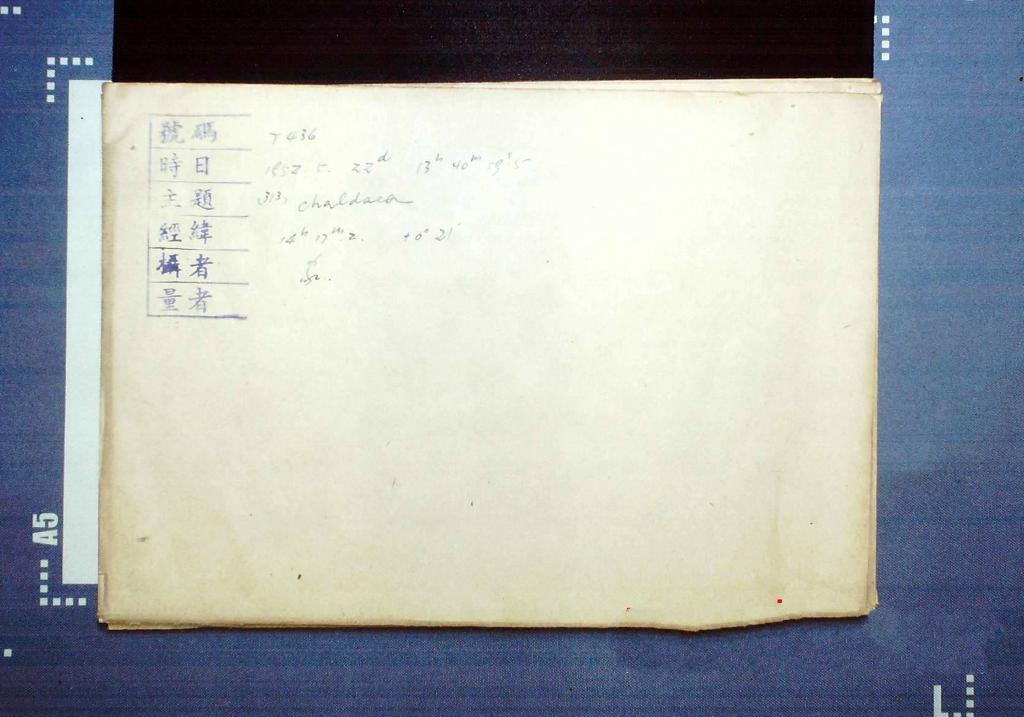 號碼 T 436
時日 1952 5. 22ᵈ 13ʰ 40ᵐ 59ˢ 5
主題 (313) chaldaea
經緯 14ʰ 17ᵐ.2. +0° 21'
攝者
量者
A5